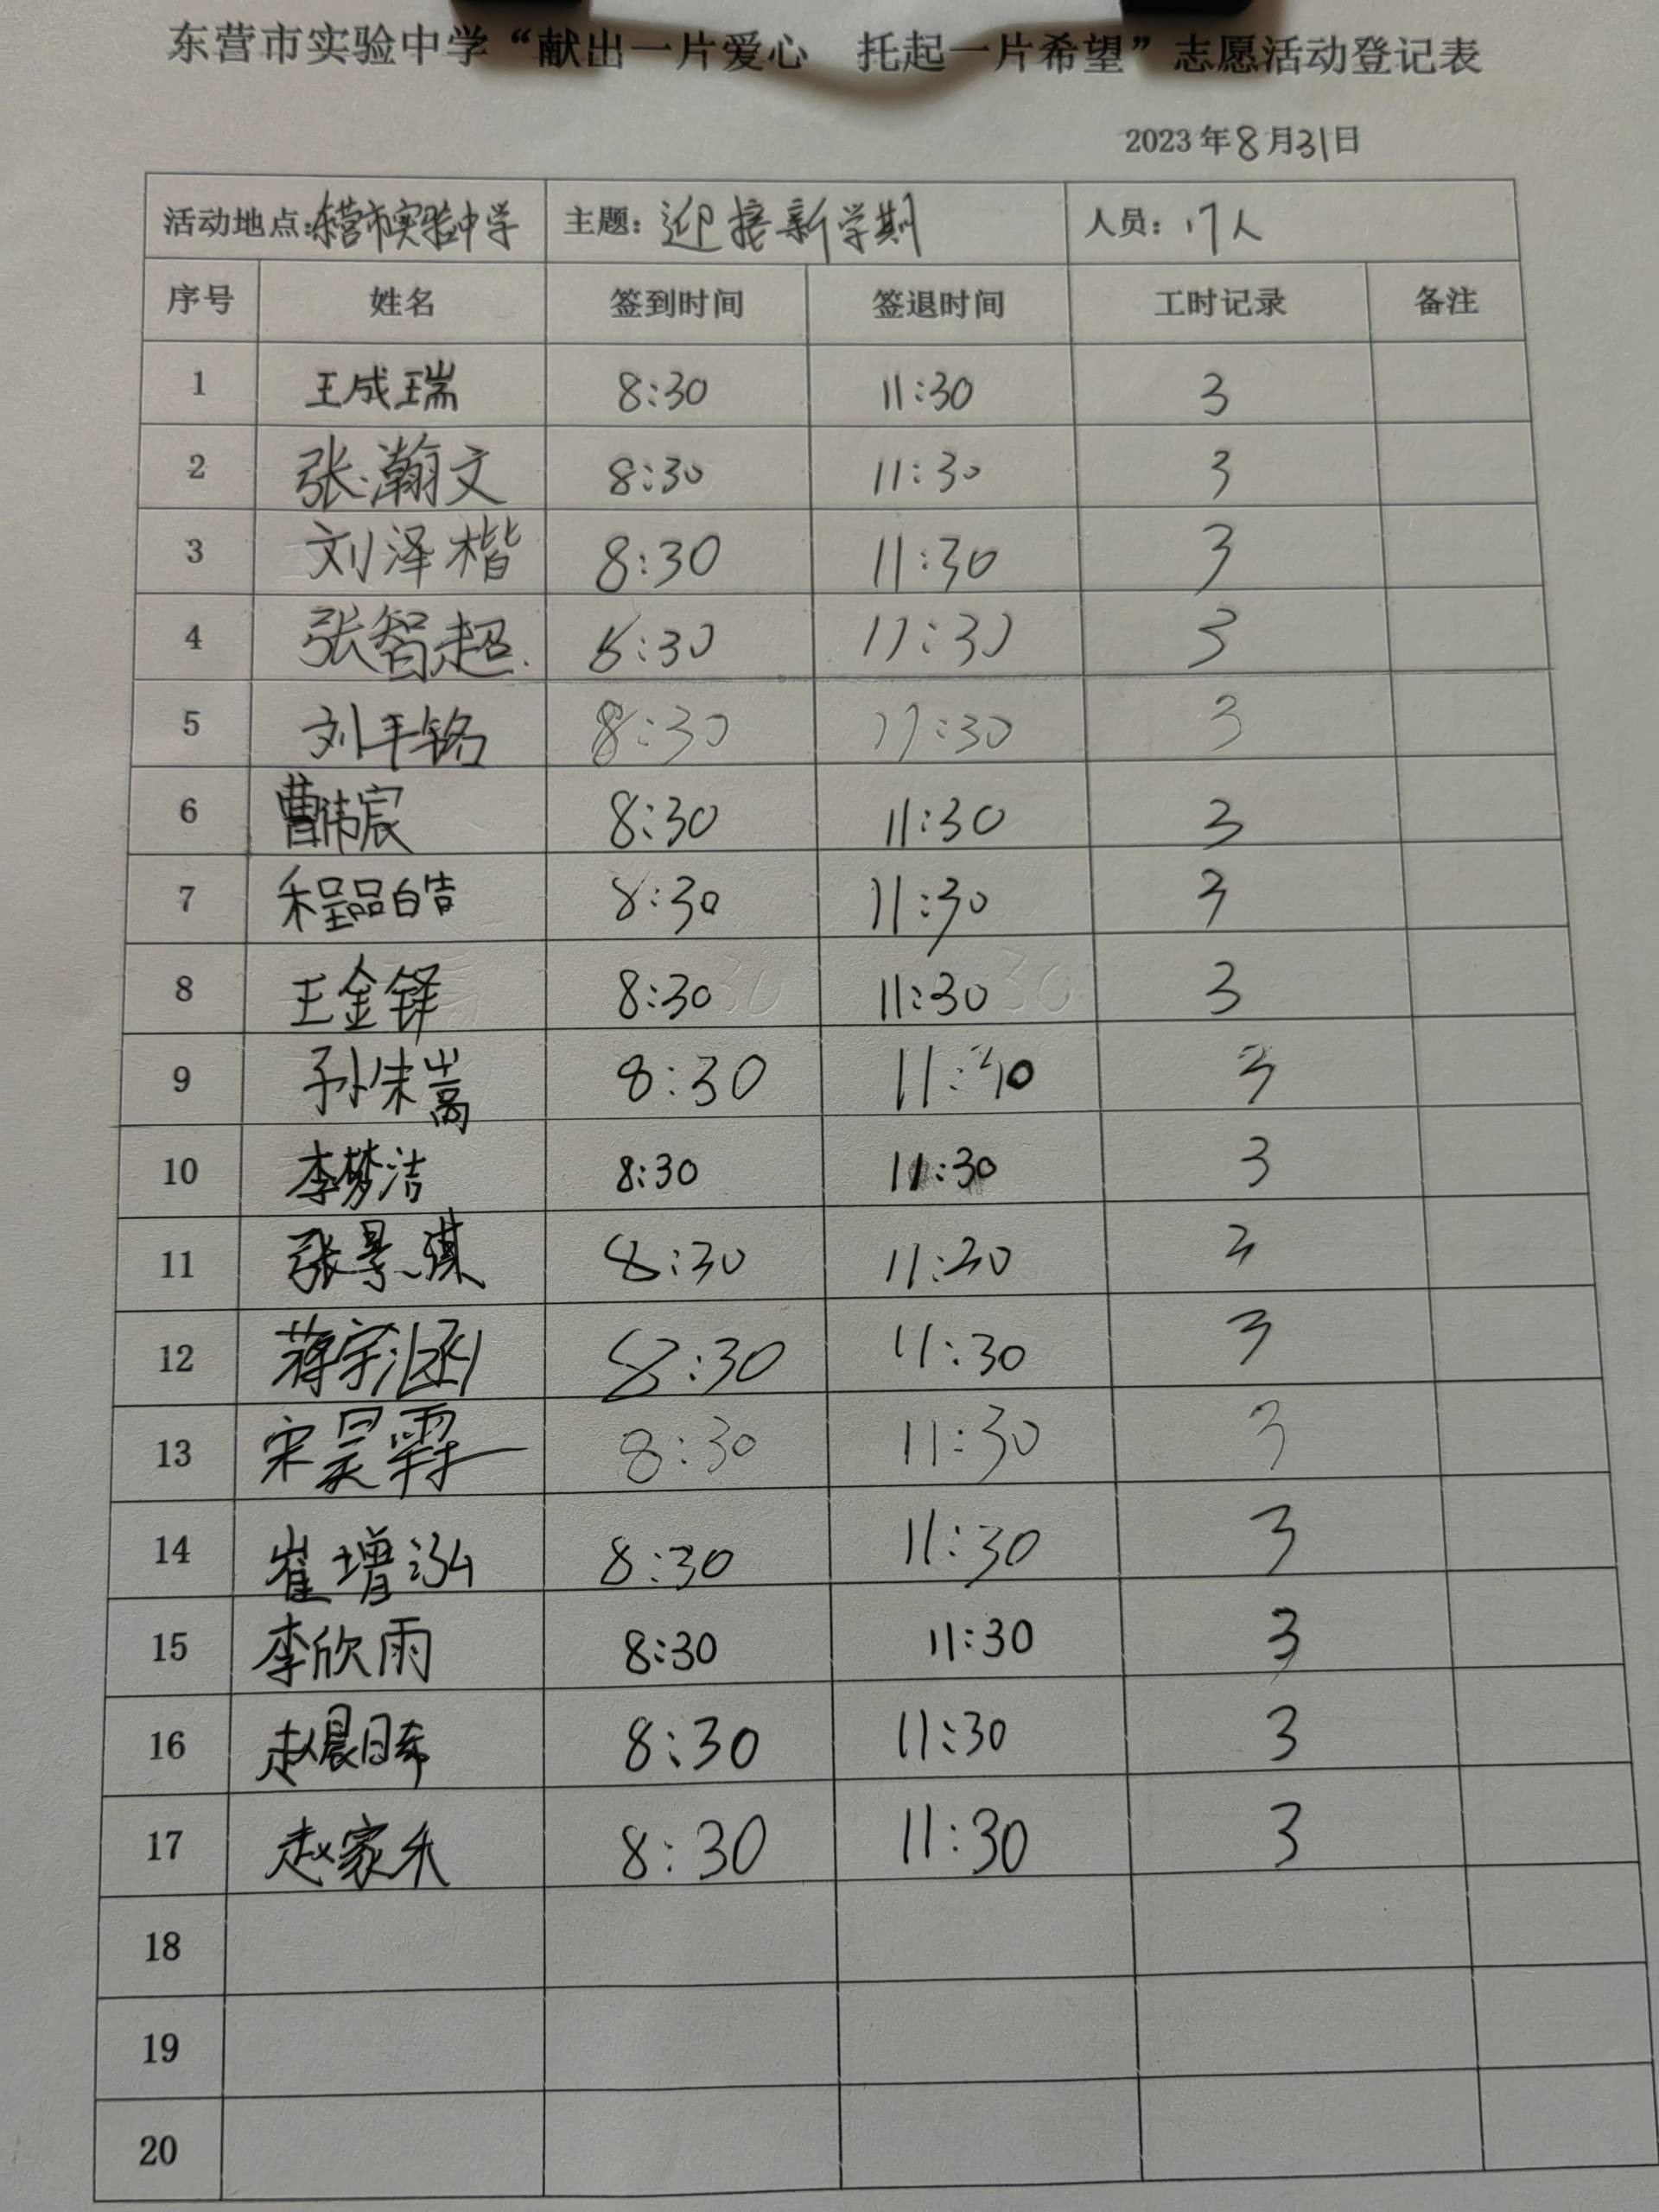 东营市实验中学“献出一片爱心 托起一片希望”志愿活动登记表
2023年8月31日
活动地点:东营市实验中学 主题:迎接新学期 人员:17人
序号 姓名 签到时间 签退时间 工时记录 备注
1 王成瑞 8:30 11:30 3
2 张瀚文 8:30 11:30 3
3 刘泽楷 8:30 11:30 3
4 张智超 8:30 11:30 3
5 刘平铭 8:30 11:30 3
6 曹伟宸 8:30 11:30 3
7 程品皓 8:30 11:30 3
8 王金铎 8:30 11:30 3
9 孙朱嵩 8:30 11:30 3
10 李梦洁 8:30 11:30 3
11 张景淇 8:30 11:30 3
12 蒋宇涵 8:30 11:30 3
13 宋昊霖 8:30 11:30 3
14 崔增泓 8:30 11:30 3
15 李欣雨 8:30 11:30 3
16 赵晨晞 8:30 11:30 3
17 赵家禾 8:30 11:30 3
18
19
20